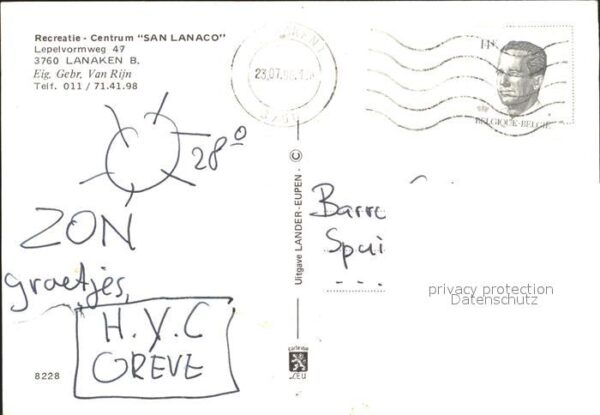 Recreatie - Centrum "SAN LANACO"
Lepelvormweg 47
3760 LANAKEN B.
Eig. Gebr, Van Rijn
Telf. 011 / 71.41.98
28°
ZON
groetjes,
H.Y.C
GREVE
8228
Uitgave LANDER-EUPEN - ©
LEU
23.07.
BELGIQUE-BELGIË
Barre
Spui
privacy protection
Datenschutz